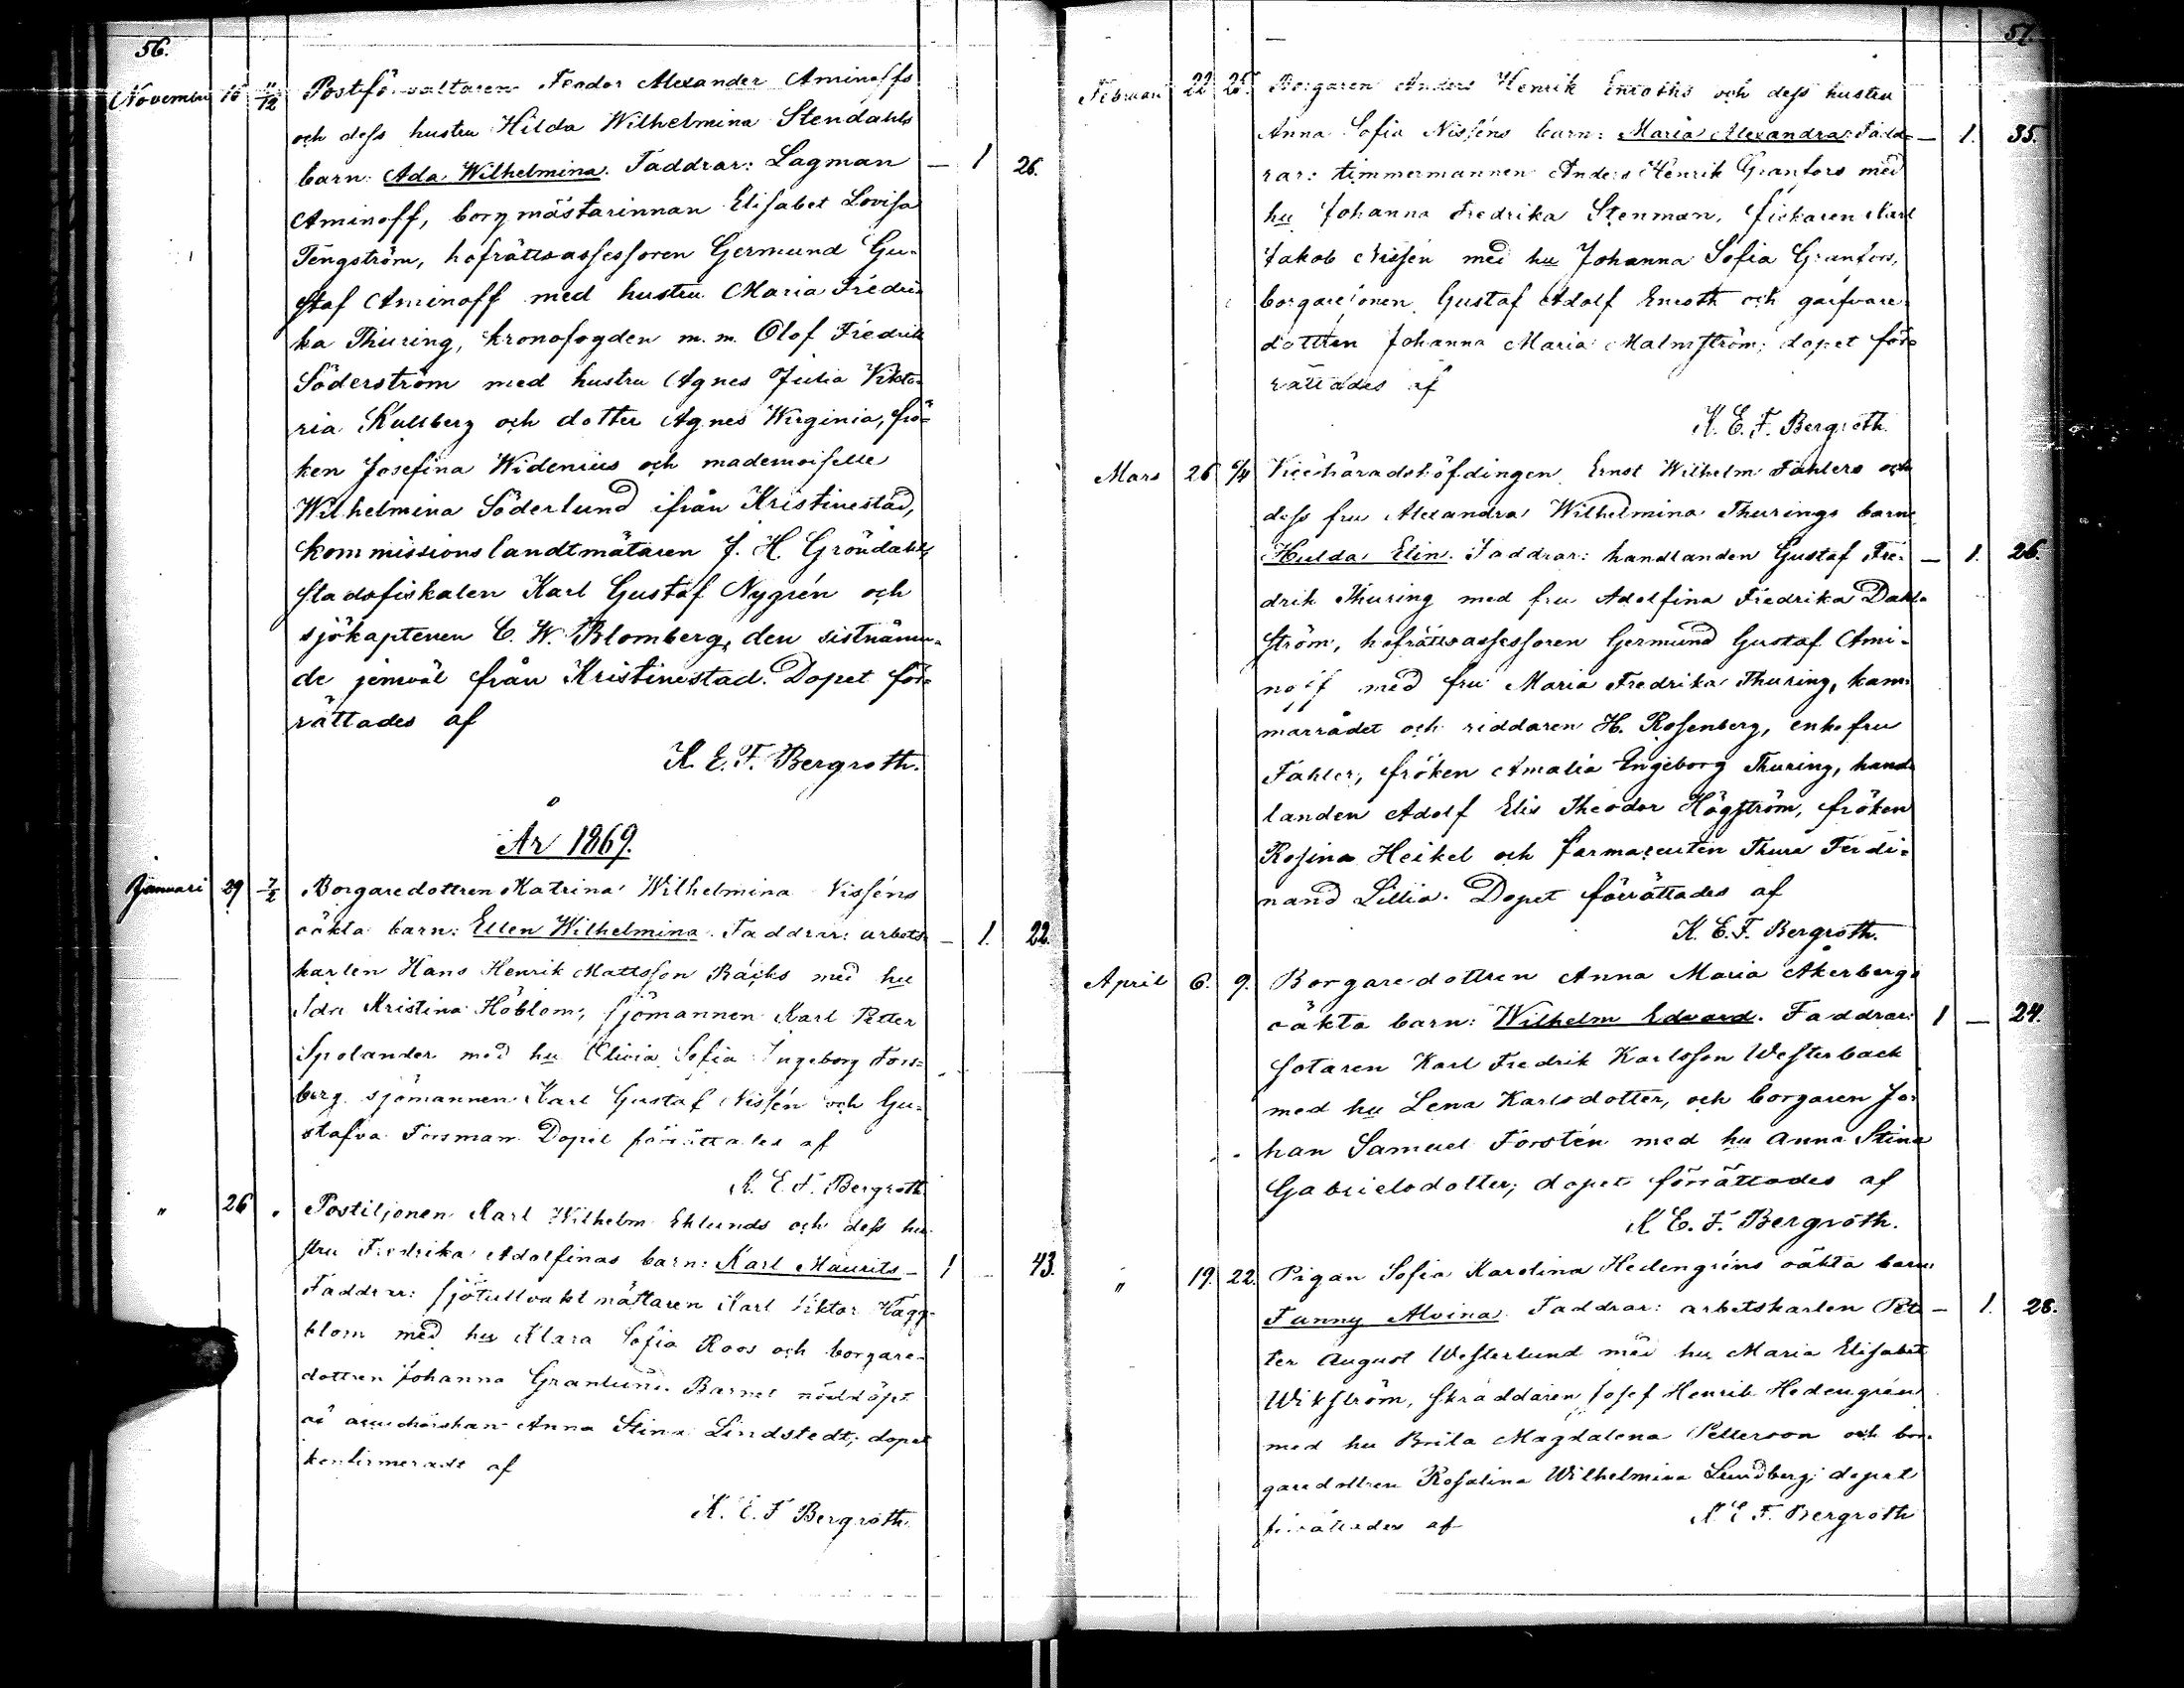 56.
November 16 11/12 Postförvaltaren Feodor Alexander Aminoffs
och dess hustru Hilda Wilhelmina Stendahls
barn: Ada Wilhelmina. Faddrar: Lagman — 1 26.
Aminoff, borgmästarinnan Elisabet Lovisa
Tengström, hofrättsassessoren Germund Gu-
staf Aminoff med hustru Maria Fredri-
ka Thuring, kronofogden m.m. Olof Fredrik
Söderström med hustru Agnes Julia Vikto-
ria Kullberg och dotter Agnes Wirginia, frö-
ken Josefina Widenius och mademoiselle
Wilhelmina Söderlund ifrån Kristinestad,
kommissionslandtmätaren J. H. Gröndahl,
stadsfiskalen Karl Gustaf Nygrén och
sjökaptenen C. W. Blomberg, den sistnämn-
de jemväl från Kristinestad. Dopet för-
rättades af
K. E. F. Bergroth.
År 1869.
Januari 29 7/2 Borgaredottren Katrina Wilhelmina Nisséns
oäkta barn: Ellen Wilhelmina. Faddrar: arbets- — 1. 22.
karlen Hans Henrik Mattsson Bäcks med hu
Ida Kristina Höblom, sjömannen Karl Petter
Spolander med hu Olivia Sofia Ingeborg Fors-
berg, sjömannen Karl Gustaf Nissén och Gu-
stafva Forsman. Dopet förrättades af
K. E. F. Bergroth.
" 26 " Postiljonen Karl Wilhelm Eklunds och dess hu-
stru Fredrika Adolfinas barn: Karl Maurits — 1 43.
Faddrar: sjötullvaktmästaren Karl Viktor Hägg-
blom med hu Klara Sofia Roos och borgare-
dottren Johanna Granlund. Barnet nöddöpt
af Anna Stina Lindstedt; dopet
konfirmerade af
K. E. F. Bergroth.
57.
Februari 22 25. Borgaren Anders Henrik Enroths och dess hustru
Anna Sofia Nisséns barn: Maria Alexandra. Fadd- — 1. 35.
rar: timmermannen Anders Henrik Granfors med
hu Johanna Fredrika Stenman, fiskaren Karl
Jakob Nissén med hu Johanna Sofia Granfors,
borgaresonen Gustaf Adolf Enroth och garfvare-
dottren Johanna Maria Malmström; dopet för-
rättades af
K. E. F. Bergroth.
Mars 26 6/4 Vicehäradshöfdingen Ernst Wilhelm Fahlers och
dess fru Alexandra Wilhelmina Thurings barn
Hulda Elin. Faddrar: handlanden Gustaf Fre- — 1. 26.
drik Thuring med fru Adolfina Fredrika Dahl-
ström, hofrättsassessoren Germund Gustaf Ami-
noff med fru Maria Fredrika Thuring, kam-
marrådet och riddaren H. Rosenberg, enkefru
Fahler, fröken Amalia Engeborg Thuring, hand-
landen Adolf Elis Theodor Högström, fröken
Rosina Heikel och farmaceuten Thure Ferdi-
nand Lillia. Dopet förrättades af
K. E. F. Bergroth.
April 6. 9. Borgaredottren Anna Maria Åkerbergs
oäkta barn: Wilhelm Edvard. Faddrar: 1 — 24.
sotaren Karl Fredrik Karlsson Westerback
med hu Lena Karlsdotter, och borgaren Jo-
han Samuel Forstén med hu Anna Stina
Gabrielsdotter; dopet förrättades af
K. E. F. Bergroth.
" 19. 22. Pigan Sofia Karolina Hedengréns oäkta barn
Fanny Alvina. Faddrar: arbetskarlen Pet- — 1. 28.
ter August Westerlund med hu Maria Elisabet
Wikström, skräddaren Josef Henrik Hedengrén
med hu Brita Magdalena Petterson och bor-
garedottren Rosalina Wilhelmina Lundberg; dopet
förrättades af K. E. F. Bergroth